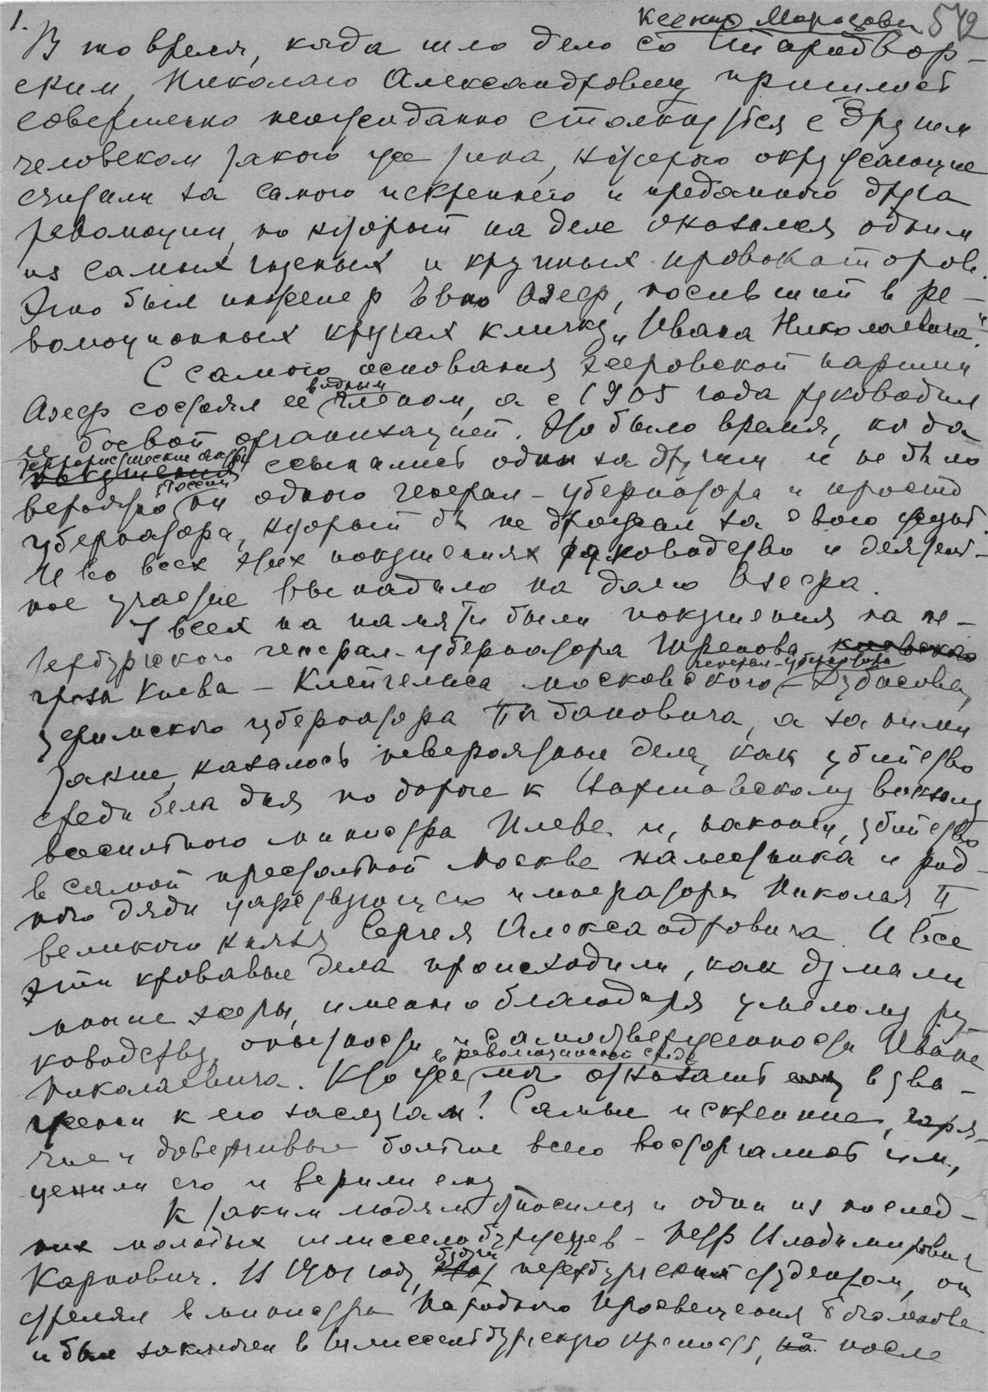 1. Ксения Морозова 572
В то время, когда шло дело со Стародвор-
ским, Николаю Александровичу пришлось
совершенно неожиданно столкнуться с другим
человеком такого же типа, которого окружающие
считали за самого искреннего и преданного друга
революции, но который на деле оказался одним
из самых гнусных и крупных провокаторов.
Это был инженер Евно Азеф, носивший в ре-
волюционных кругах кличку „Ивана Николаевича".
С самого основания эсеровской партии
Азеф состоял ее видным членом, а с 1905 года руководил
ее боевой организацией. Это было время, когда
террористические акты ссыпались один за другим и не было
вероятно в России ни одного генерал-губернатора и просто
губернатора, который бы не дрожал за свою жизнь.
И во всех этих покушениях руководство и деятель-
ное участие выпадило на долю Азефа.
У всех на памяти были покушения на пе-
тербургского генерал-губернатора Трепова, киевского
Киева - Клейгельса, московского генерал-губернатора - Дубасова,
уфимского губернатора Богдановича, а за ними
такие, казалось невероятные дела, как убийство
среди бела дня по дороге к Варшавскому вокзалу
всесильного министра Плеве и, наконец, убийство
в самой престольной Москве наместника и род-
ного дяди царствующего императора Николая II
великого князя Сергея Александровича. И все
эти кровавые дела происходили, как думали
иные эсеры, именно благодаря умелому ру-
ководству, опытности и самоотверженности Ивана
Николаевича. Кто же в революционной среде мог отказать ему в ува-
жении к его заслугам! Самые искренние, горя-
чие и доверчивые больше всего восторгались им,
ценили его и верили ему
К таким людям относился и один из послед-
них молодых шлиссельбуржцев - Петр Владимирович
Карпович. В 1901 году, будучи петербургским студентом, он
стрелял в министра Народного Просвещения Боголепова
и был заключен в Шлиссельбургскую крепость, но после